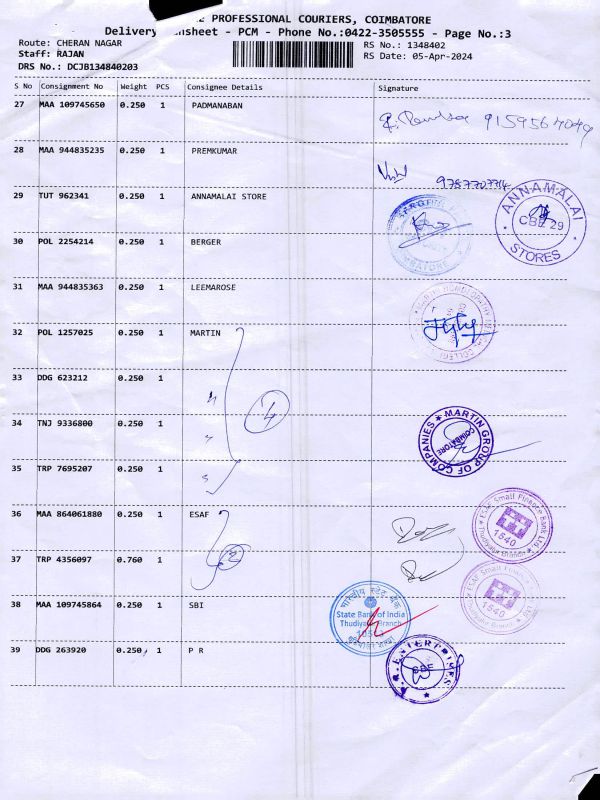 PROFESSIONAL COURIERS, COIMBATORE
Delivery - PCM - Phone No.:0422-3505555 - Page No.:3
Route: CHERAN NAGAR
RS No.: 1348402
Staff: RAJAN
RS Date: 05-Apr-2024
DRS No.: DCJB134840203
S No Consignment No Weight PCS Consignee Details Signature
27 MAA 109745650 0.250 1 PADMANABAN
28 MAA 944835235 0.250 1 PREMKUMAR
29 TUT 962341 0.250 1 ANNAMALAI STORE
ANNAMALAI
CBE 29
STORES
30 POL 2254214 0.250 1 BERGER
31 MAA 944835363 0.250 1 LEEMAROSE
32 POL 1257025 0.250 1 MARTIN
33 DDG 623212 0.250 1
4
34 TNJ 9336800 0.250 1
MARTIN GROUP OF COMPANIES
COIMBATORE
35 TRP 7695207 0.250 1
36 MAA 864061880 0.250 1 ESAF
ESAF Small Finance Bank Ltd.
1540
Thudiyalur Branch
37 TRP 4356097 0.760 1
2
ESAF Small Finance
1540
Thudiyalur Branch
38 MAA 109745864 0.250 1 SBI
भारतीय स्टेट बैंक
State Bank of India
39 DDG 263920 0.250 1 P R
ENTERPRISES
CBE